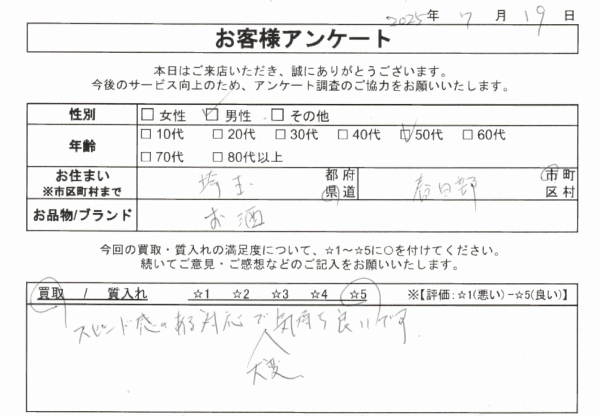 2025年 7月 19日
お客様アンケート
本日はご来店いただき、誠にありがとうございます。
今後のサービス向上のため、アンケート調査のご協力をお願いいたします。
性別 □女性 □男性 □その他
年齢 □10代 □20代 □30代 □40代 □50代 □60代
□70代 □80代以上
お住まい ※市区町村まで 埼玉 都府県道 春日部 市町区村
お品物/ブランド お酒
今回の買取・質入れの満足度について、☆1～☆5に○を付けてください。
続いてご意見・ご感想などのご記入をお願いいたします。
買取 / 質入れ ☆1 ☆2 ☆3 ☆4 ☆5 ※【評価:☆1(悪い)−☆5(良い)】
スピード感のある対応で気持ち良いです
大変